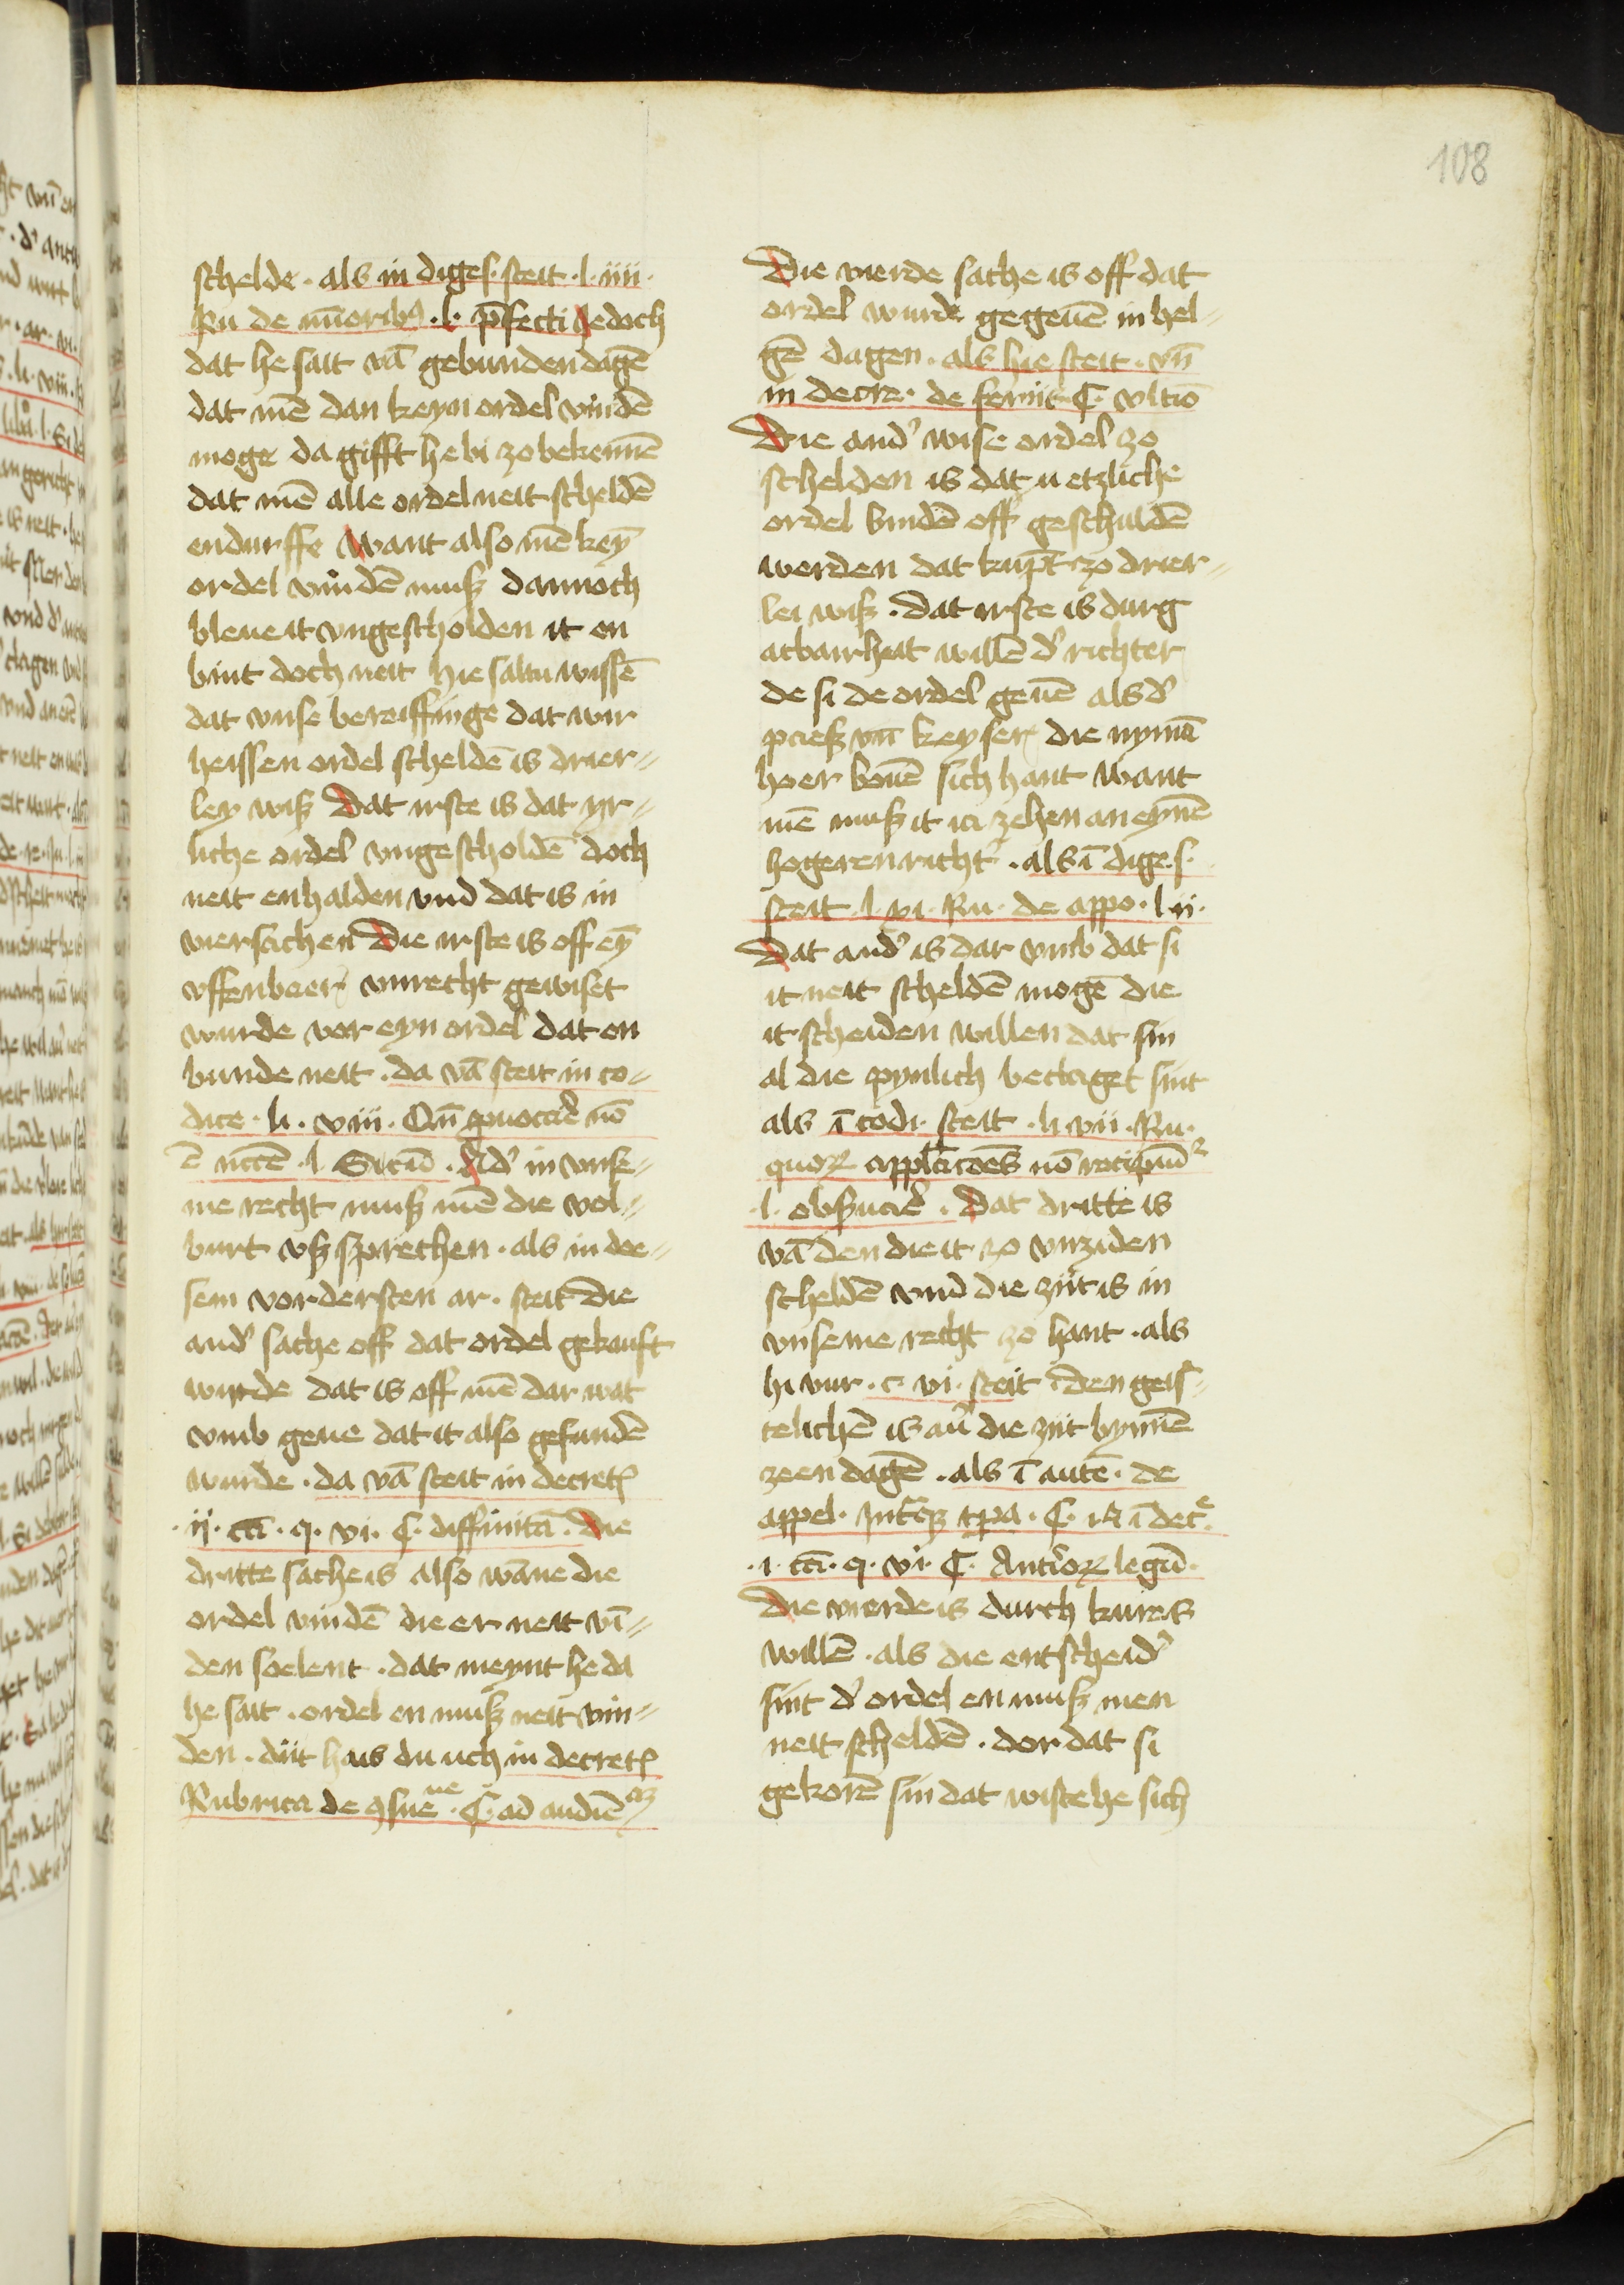 108
schelde · als in diges · steit · l · iiii ·
Ru de mīorib9 · l · p̄fecti Jedoch
dat he sait vā gebunden dagē
dat mē dan keyn ordel vindē
moge da gifft he bi zo bekennē
dat mē alle ordel neit scheldē
endurffe Want also mē keȳ
ordel vindē muß dannoch
bleue it vngescholden it en
bint doch neit hie saltu wissē
dat vnse bereiffunge dat wir
heissen ordel scheldē is drier-
ley wiß Dat irste is dat yr-
liche ordel vngescholdē doch
neit enhalden vnd dat is in
vier sachen Die irste is off eȳ
vffenbaer vnrecht gewiset
wurde vor eyn ordel dat en
bunde neit · da vā steit in co-
dice · li · viii · Qn̄ ꝓuocaē nō
ē nccē · l Secū · Ad' in vnse-
me recht muß mē die vol-
burt vß sprechen · als in dee-
sem vordersten ar · steit Die
and' sache off dat ordel gekauft
wurde dat is off mē dar wat
vmb geue dat it also gefundē
wurde · da vā steit in decret
· ii · cā · q · vi · C · diffinitā · Die
dritte sache is also wāne die
ordel vindē die er neit vī-
den soelent · dat meynt he da
he sait · ordel en muß neit vin-
den · diit hais du uch in decret
Rubrica de ꝯsue · C · ad audiē
Die vierde sache is off dat
ordel wurde gegeuē in hel-
gē dagen · als hie steit · vn̄
in decre · de feriis C · vltio
Die and' wise ordel zo
schelden is dat u etzliche
ordel bindē off geschuldē
werden dat kupt zo drier-
lei wiß · Dat irste is durg
acbairheit willē d' richter
de si de ordel geuē als d'
paeß vn̄ keyser die nymā
hoer bouē sich hant Want
mē muß it ia zehen an eynē
hogeren richt' · als ī diges ·
steit · l · xi · Ru · de appo · l ii ·
Dat and' is dar vmb dat si
it neit scheldē mogē die
it scheiden willen dat sin
al die pynlich beclaget sint
als ī codi · steit · li vii · Ru ·
quoꝝ appłacōēs nō recipiūt
· l · obseruaē · Dat dritte is
vā den die it zo vnziden
scheldē vnd die ziit is in
vnseme recht zo hant · als
hi vur · c · vi · steit ī den geis-
telichē is au' die ziit bynnē
zeen dagē · als ī autē · de
appel · Int̄ q̄ tꝑa · C · i · R ī dec̄ ·
· i · cā · q · vi · C · Ant'ioꝝ legū ·
Die vierde is durch kuires
willē · als die entscheid'
sint d' ordel en muß men
neit scheldē · dor dat si
gekorē sin dat wiste he sich